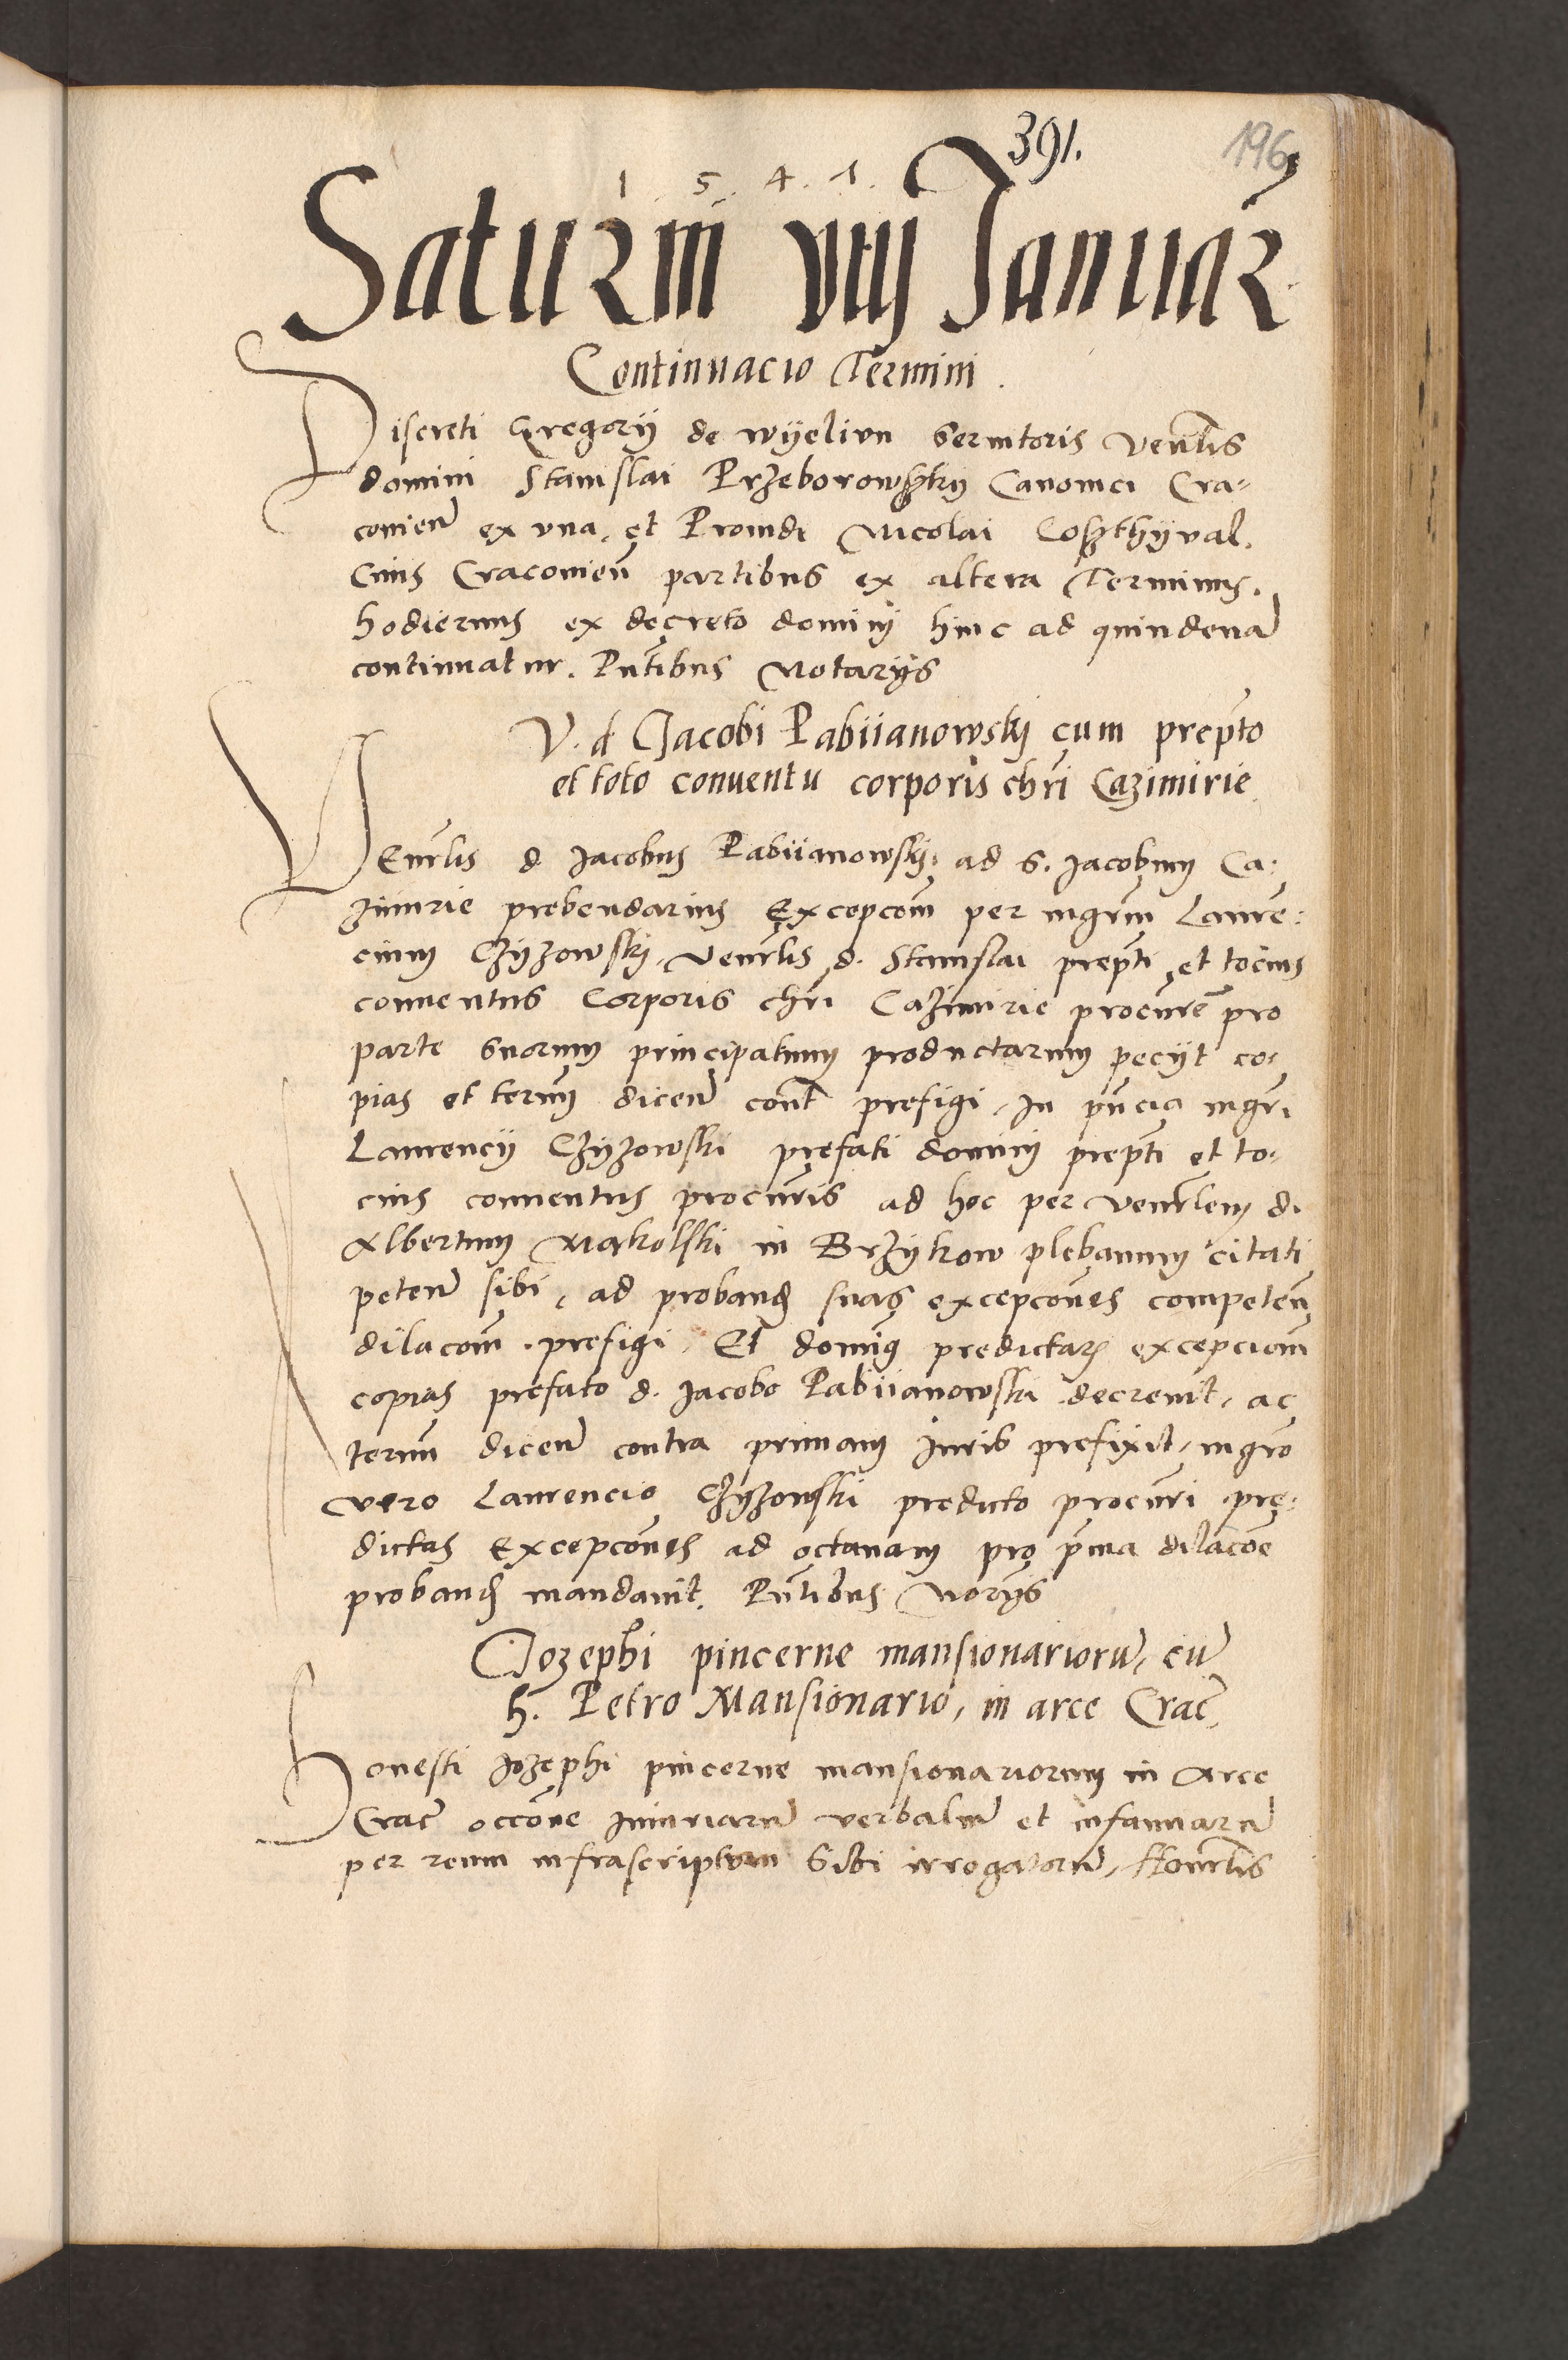 391.
196
1 5. 4. 1.
Saturni viij Januar
Continuacio Termini.
Discreti Gregorij de wyelivn Servitoris Venrlis
domini Stanislai Przeborowszky Canonici Cra-
coviensis ex vna, et Providi Nicolai
Civis Cracovien partibus ex altera Terminus.
hodiernus ex decreto dominj hinc ad quindena
continuatur. Pntibus Notarijs
V. d Jacobi Pabiianowskj cum prepto
et toto conuentu corporis chri Cazimirie
VEnrlis d Jacobus Pabiianowskj. ad S. Jacobum Ca-
zimirie prebendarius Excepcom per mgrm Lauren-
cium Czyzowskj, Venrlis d. Stanislai prepti et tocius
conuentus Corporis chri Cazimirie procurem pro
parte suorum principalium productarum pecijt co-
pias et termm dicen cont prefigi, In pncia mgri
Laurencij Czyzowski prefati dominj prepti et to-
cius conuentus procuris ad hoc per venrlem d.
Albertum Makolski in Brzykow plebanum citati
peten sibi, ad proband suas excepcones competen
dilacom prefigi, Et dominus predictar excepcionm
copias prefato d. Jacobo Pabiianowski decreuit, ac
termm dicen contra primam Jurid prefixit, mgro
vero Laurencio Czyzowski predicto procuri pre-
dictas Excepcones ad octauam pro pma dilacoe
proband mandauit. Pntibus Norijs
Jozephi pincerne mansionarioru, cu
h. Petro Mansionario, in arce Crac,
Honesti Jozephi pincerne mansionariorum in Arce
Crac occone Iniuriaru verbaliu et infamiaru
per reum infrascriptum Sibi irrogatoru, Honrlis